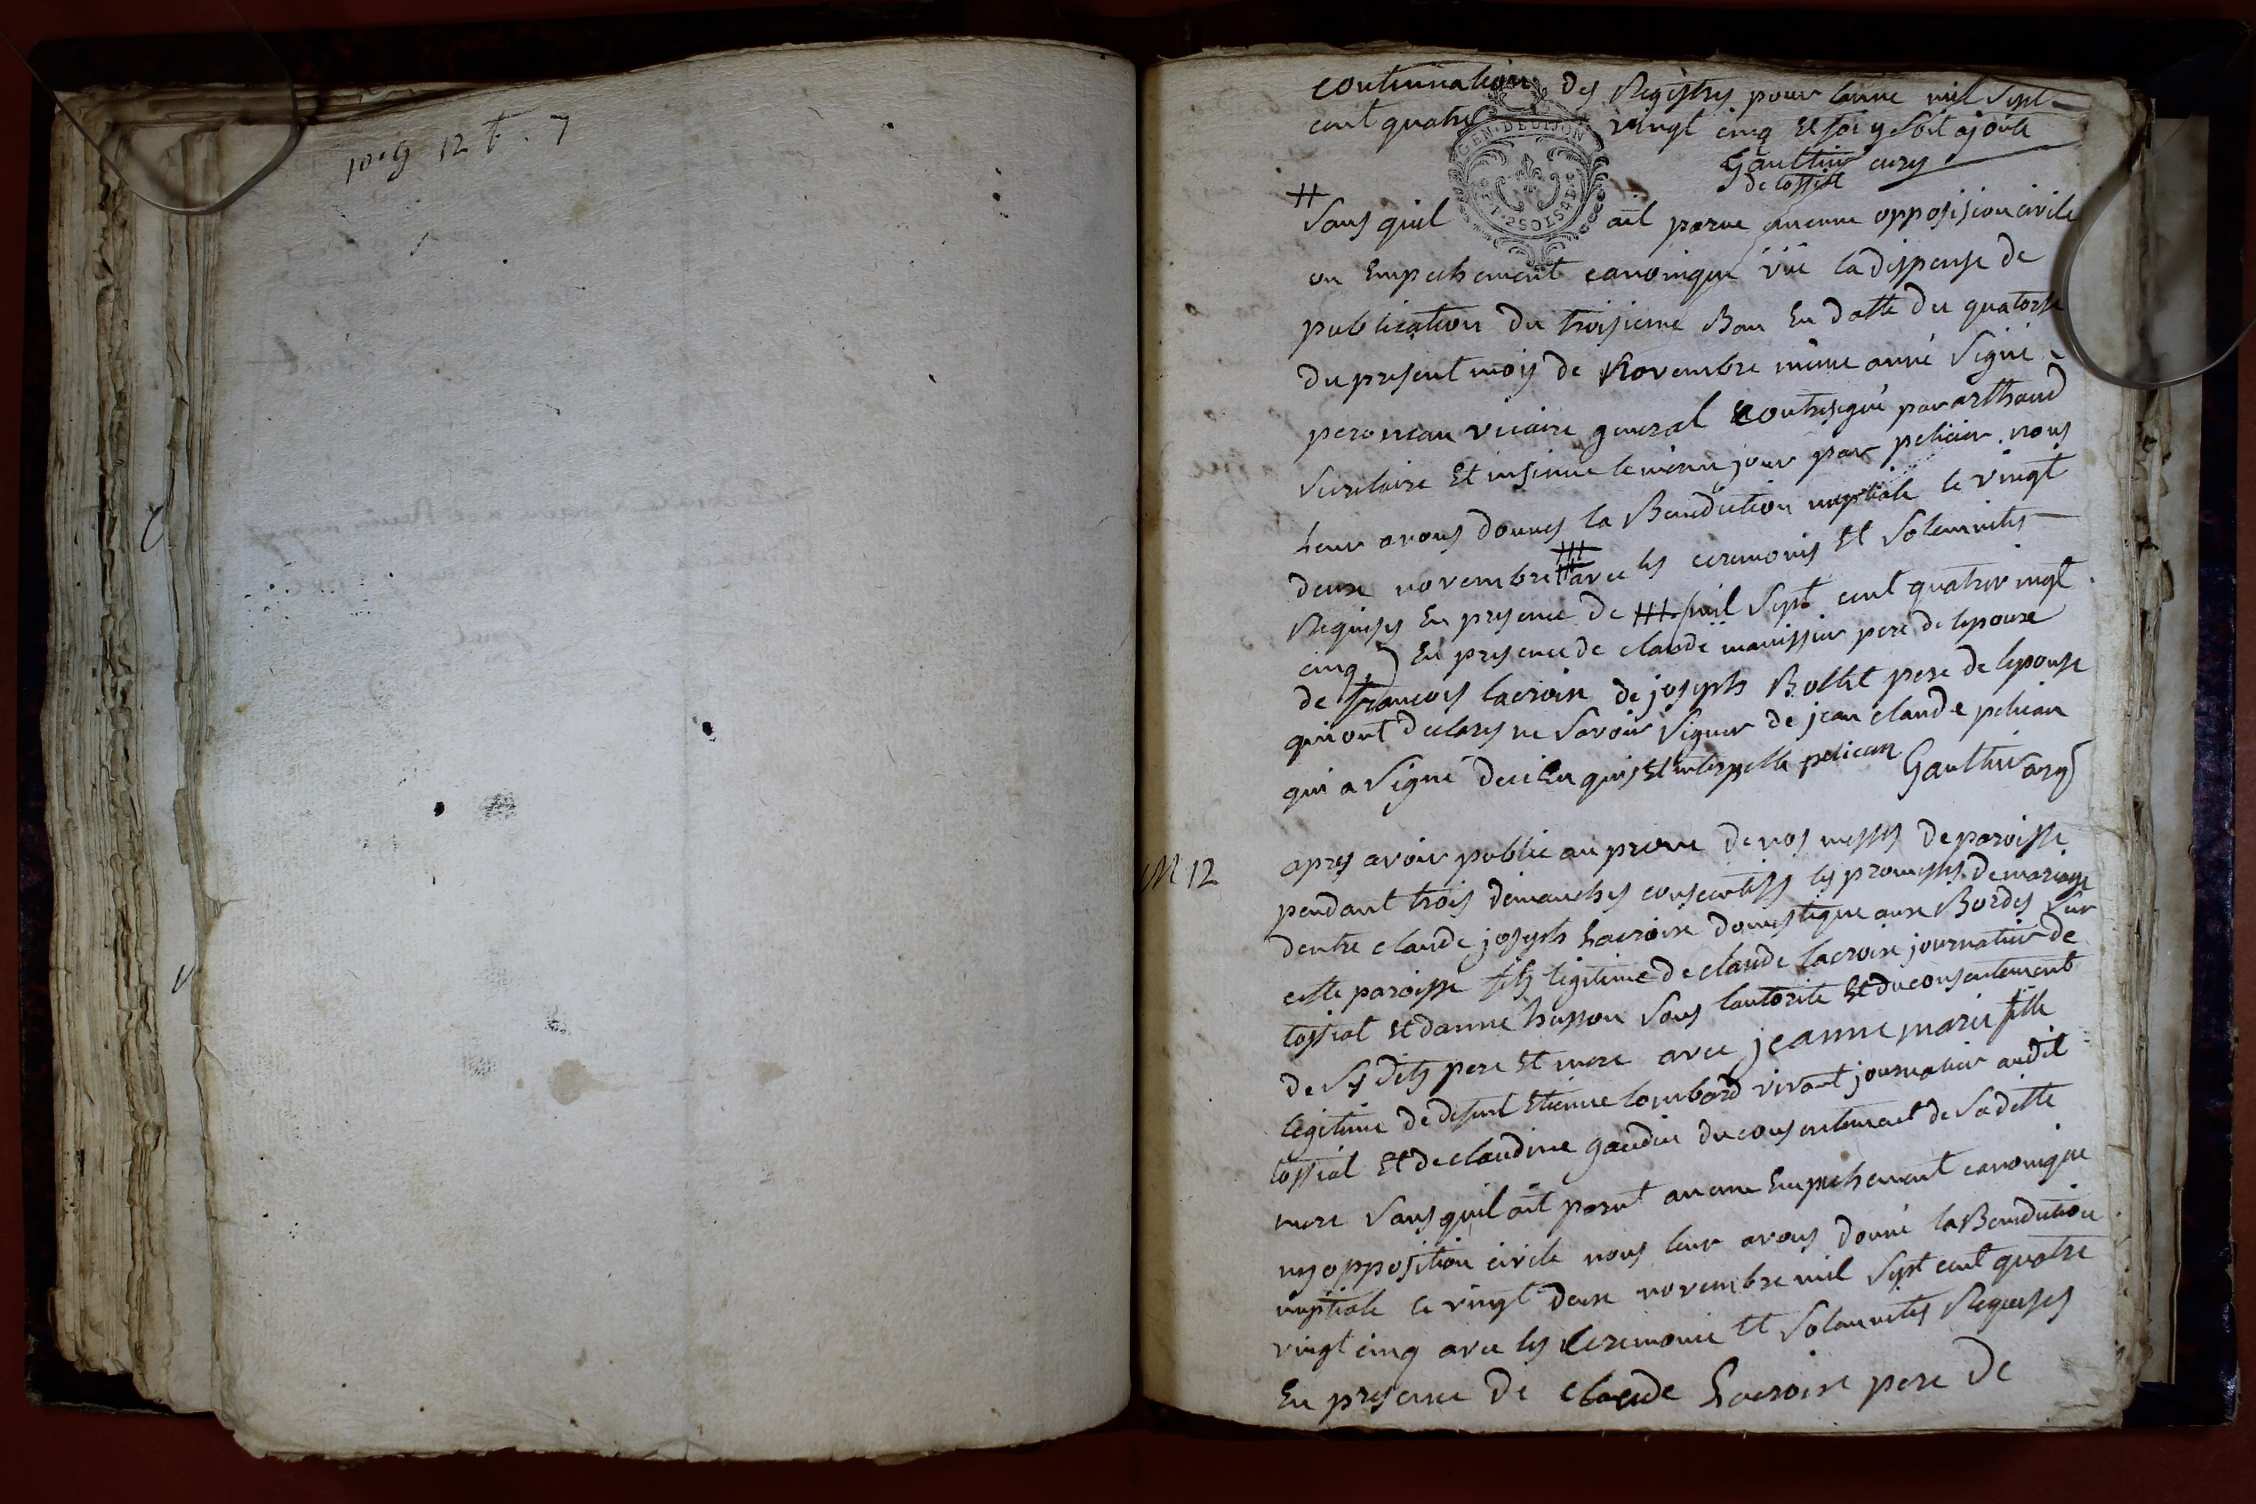 10 g 12 f. 7
continuation des Registres pour lanne mil sept
cent quatre vingt cinq et foi y soit ajoute
Gaulthier curé
de cossiat
GEN·DE DIJON
sans quil ait parue aucune opposision civile
ou Empechement canonique vüe la dispense de
publication du troisieme Ban En datte du quatorse
du present mois de Novembre même anné signé
peronneau vicaire general contresigné par arthaud
secretaire Et insinue le même jour par pelicier nous
leur avons donnes la Benediction nuptiale le vingt
deux novembre avec les ceremonis Et solemnites
Requises En presence de mil sept cent quatrevingt
cinq) En presence de claude manissier pere de lepoux
de francois lacroix de joseph Bollet pere de lepouse
qui ont declares ne savoir signer de jean claude pelican
qui a signé de ce Enquis Et interpelle pelican Gaulthier curé
M 12
apres avoir publie au prone de nos messes de paroisse
pendant trois dimanches consecutifs les promesses de mariage
dentre claude joseph Lacroix domestique aux Bordes sur
cette paroisse fils legitime de claude lacroix journalier de
cossiat Et danne husson sous lautorite Et du consentement
de ses dits pere Et mere avec jeanne marie fille
legitime de defunt Etienne lombard vivant journalier audit
cossiat Et de claudine gaudin du consentement de sa ditte
mere sans quil ait parut aucune Empechement canonique
ny opposition civile nous leur avons donné la Benediction
nuptiale le vingt deux novembre mil sept cent quatre
vingt cinq avec les ceremonie Et solemnites Requises
En presence de claude Lacroix pere de